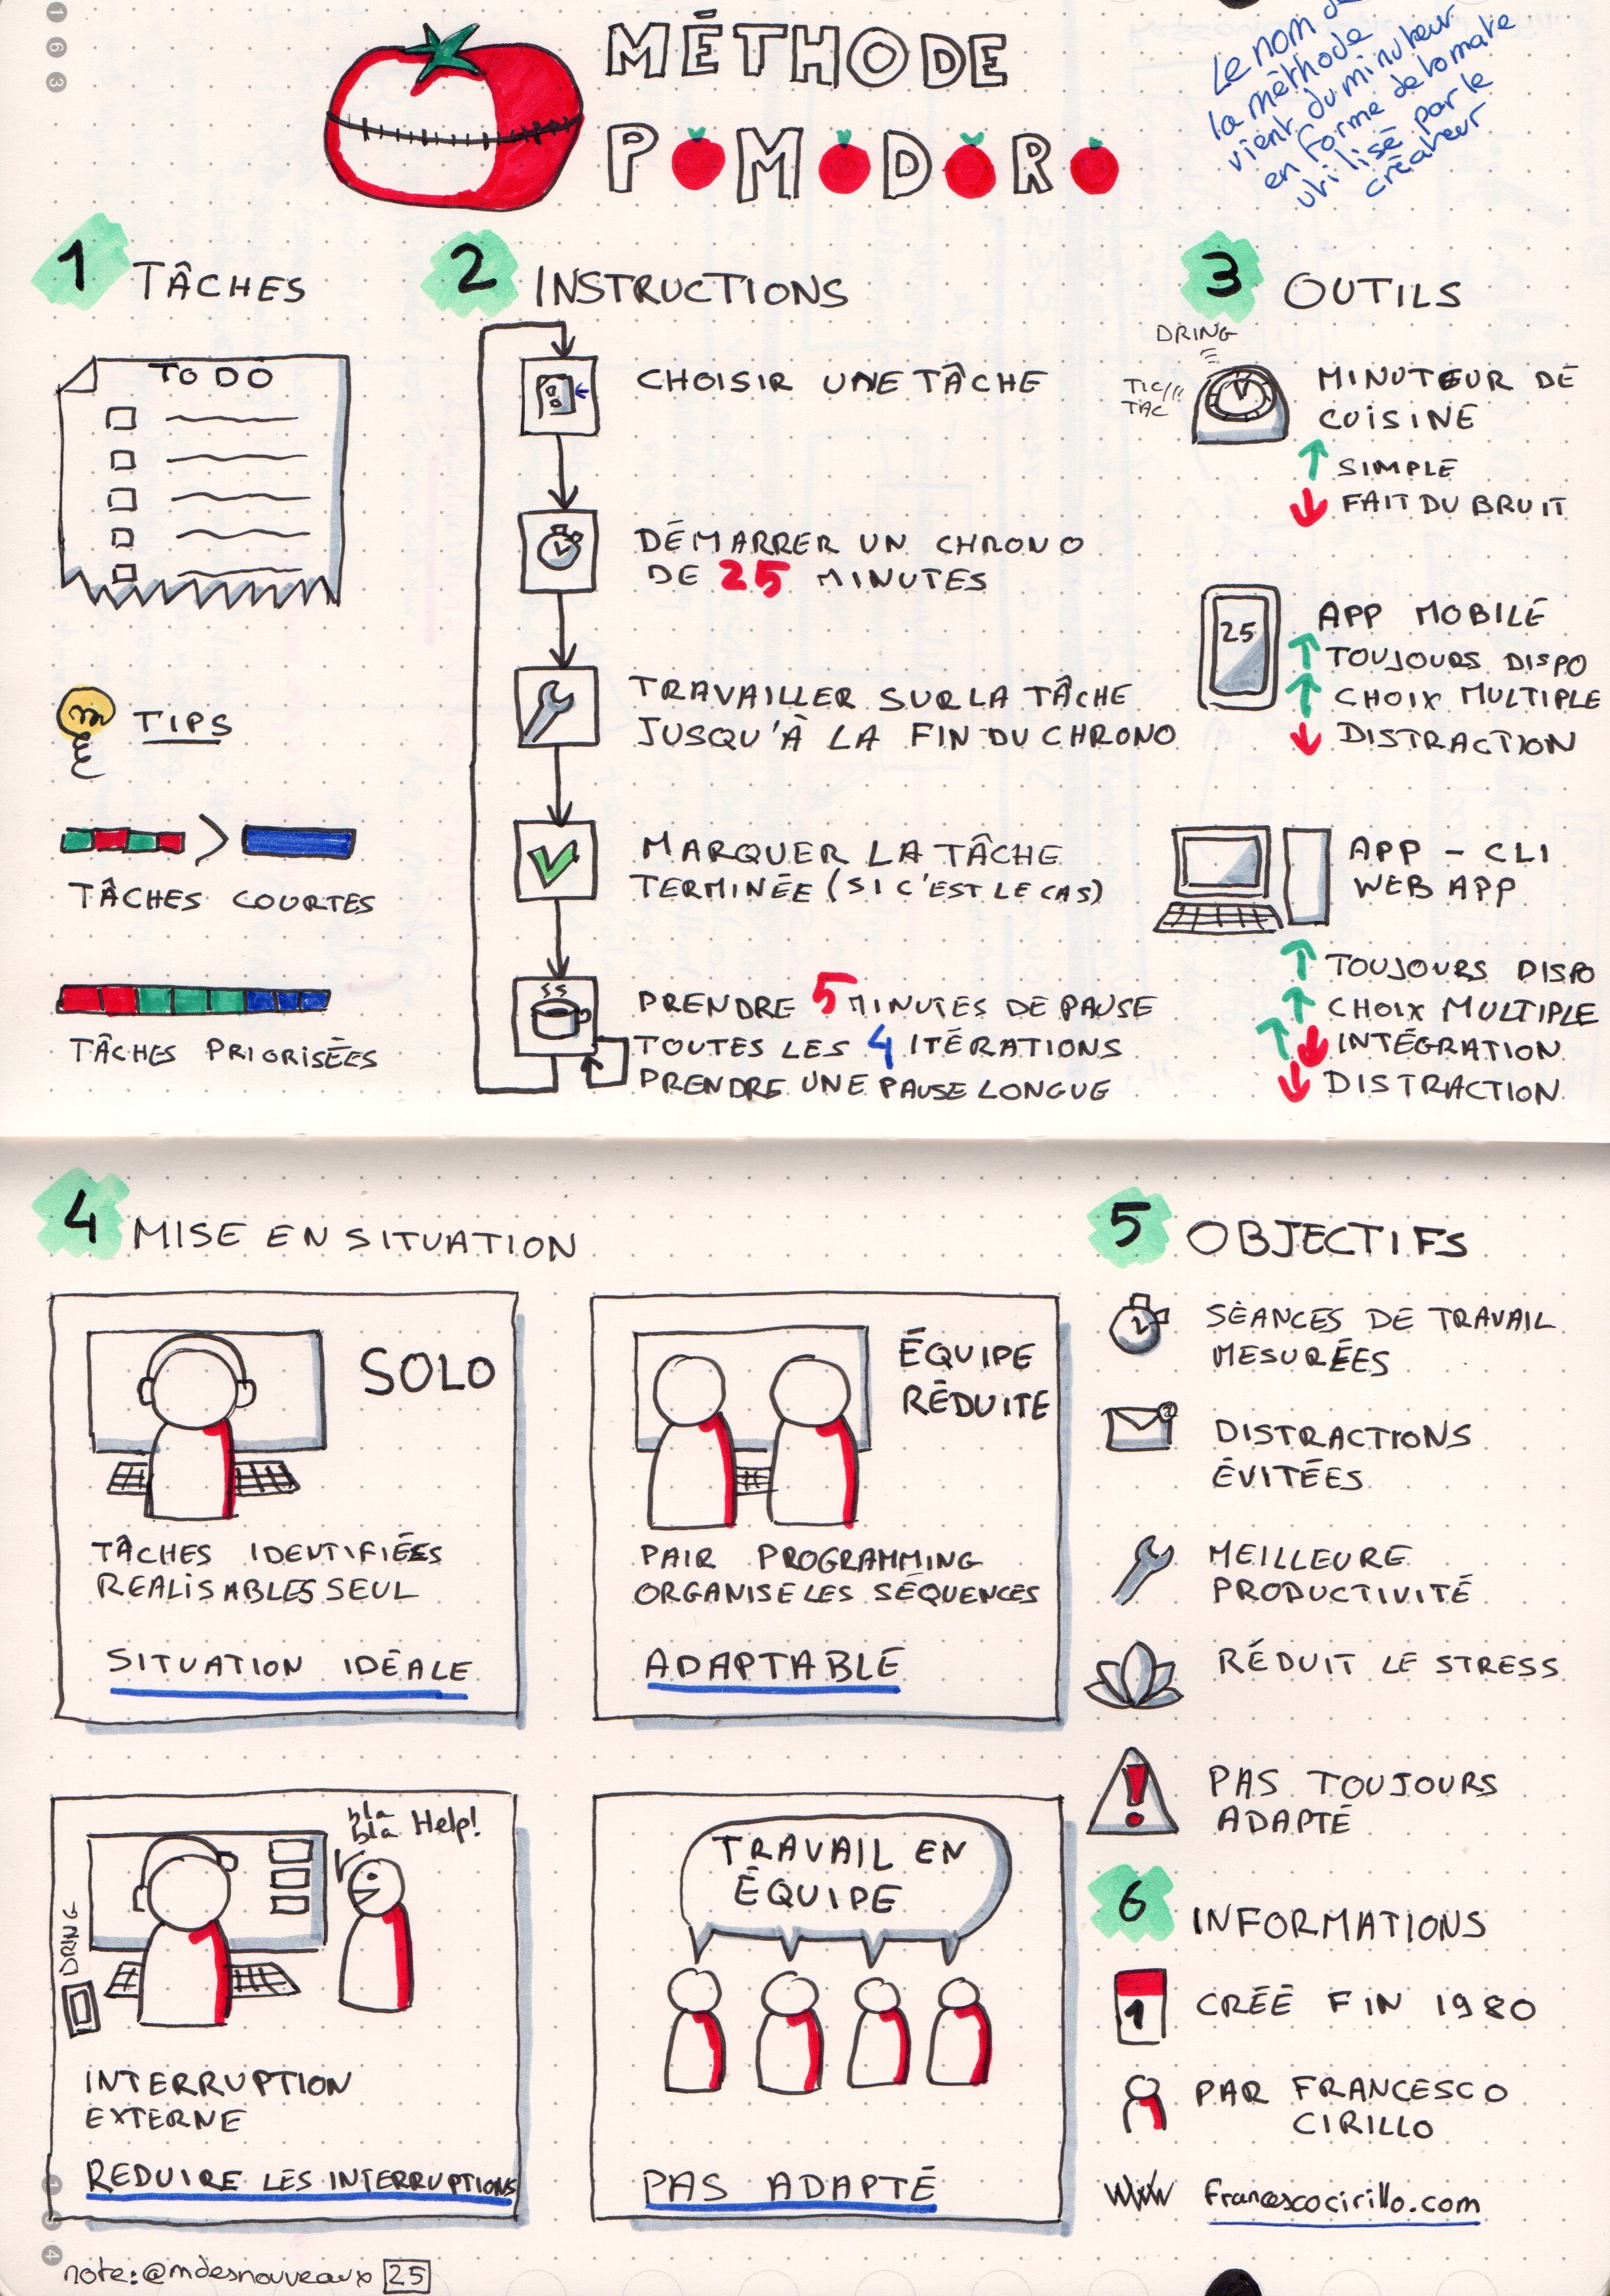 MÉTHODE
POMODORO
Le nom de
la méthode
vient du minuteur
en forme de tomate
utilisé par le
créateur
1 TÂCHES
TO DO
TIPS
>
TÂCHES COURTES
TÂCHES PRIORISÉES
2 INSTRUCTIONS
CHOISIR UNE TÂCHE
DÉMARRER UN CHRONO
DE 25 MINUTES
TRAVAILLER SUR LA TÂCHE
JUSQU'À LA FIN DU CHRONO
MARQUER LA TÂCHE
TERMINÉE (SI C'EST LE CAS)
PRENDRE 5 MINUTES DE PAUSE
TOUTES LES 4 ITÉRATIONS
PRENDRE UNE PAUSE LONGUE
3 OUTILS
DRING
TIC
TAC
MINUTEUR DE
CUISINE
↑ SIMPLE
↓ FAIT DU BRUIT
25
APP MOBILE
↑ TOUJOURS DISPO
↑ CHOIX MULTIPLE
↓ DISTRACTION
APP - CLI
WEB APP
↑ TOUJOURS DISPO
↑ CHOIX MULTIPLE
↑↓ INTÉGRATION
↓ DISTRACTION
4 MISE EN SITUATION
SOLO
TÂCHES IDENTIFIÉES
REALISABLES SEUL
SITUATION IDÉALE
ÉQUIPE
RÉDUITE
PAIR PROGRAMMING
ORGANISE LES SÉQUENCES
ADAPTABLE
bla
bla Help!
DRING
INTERRUPTION
EXTERNE
REDUIRE LES INTERRUPTIONS
TRAVAIL EN
ÉQUIPE
PAS ADAPTÉ
5 OBJECTIFS
SÉANCES DE TRAVAIL
MESURÉES
@
DISTRACTIONS
ÉVITÉES
MEILLEURE
PRODUCTIVITÉ
RÉDUIT LE STRESS
!
PAS TOUJOURS
ADAPTÉ
6 INFORMATIONS
1
CRÉÉ FIN 1980
PAR FRANCESCO
CIRILLO
WWW francescocirillo.com
note: @mdesnouveaux 25
163